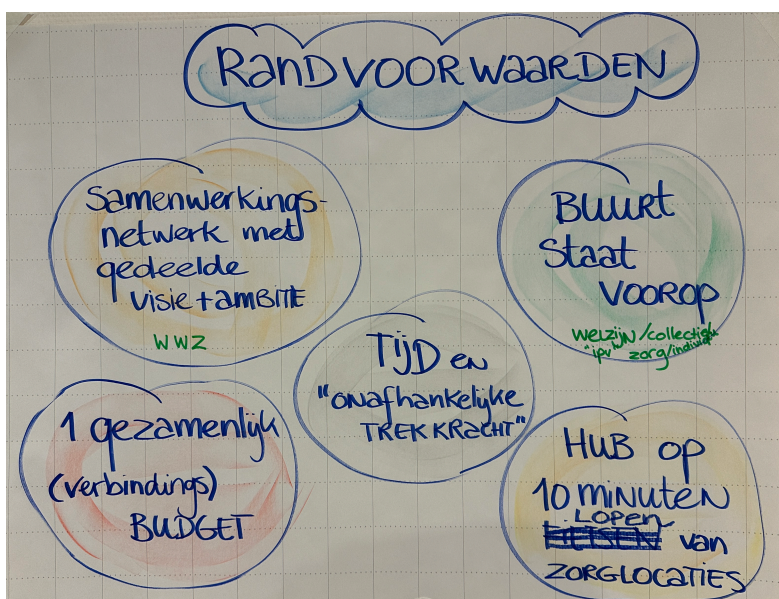 RANDVOORWAARDEN
Samenwerkings-
netwerk met
gedeelde
visie + AMBITIE
WWZ
BUURT
Staat
VOOROP
WELZIJN/collectief
"ipv" zorg/individu
TIJD en
"onafhankelijke
TREKKRACHT"
1 gezamenlijk
(verbindings)
BUDGET
HUB op
10 minuten
LOPEN
FIETSEN van
ZORGLOCATIES